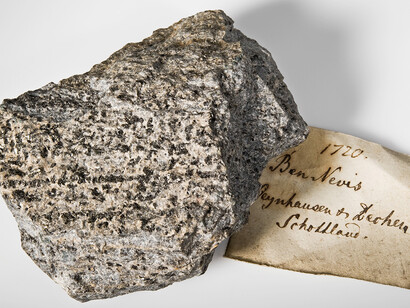 1720.
Ben Nevis
Oeynhausen & Dechen
Schottland.